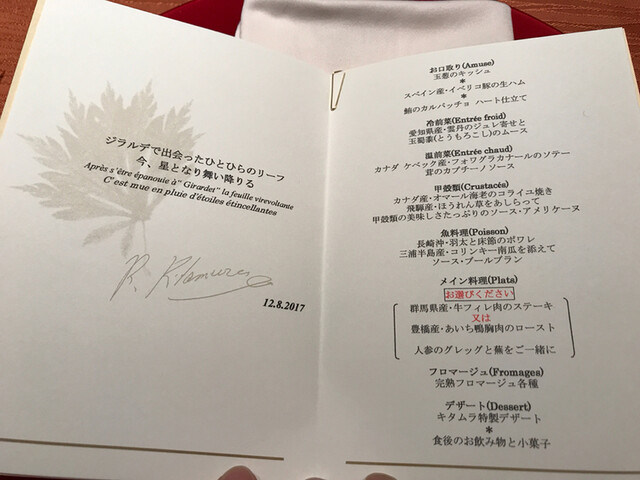 ジラルデで出会ったひとひらのリーフ
今、星となり舞い降りる
Après s'être épanouie à" Girardet" la feuille virevoltante
C'est mue en pluie d'étoiles étincellantes
R. Kitamura
12.8.2017
お口取り(Amuse)
玉葱のキッシュ
*
スペイン産・イベリコ豚の生ハム
*
鮪のカルパッチョ ハート仕立て
冷前菜(Entrée froid)
愛知県産・雲丹のジュレ寄せと
玉蜀黍(とうもろこし)のムース
温前菜(Entrée chaud)
カナダ ケベック産・フォワグラカナールのソテー
茸のカプチーノソース
甲殻類(Crustacés)
カナダ産・オマール海老のコライユ焼き
飛騨産・ほうれん草をあしらって
甲殻類の美味しさたっぷりのソース・アメリケーヌ
魚料理(Poisson)
長崎沖・羽太と床節のポワレ
三浦半島産・コリンキー南瓜を添えて
ソース・ブールブラン
メイン料理(Plats)
お選びください
群馬県産・牛フィレ肉のステーキ
又は
豊橋産・あいち鴨胸肉のロースト
人参のグレッグと蕪をご一緒に
フロマージュ(Fromages)
完熟フロマージュ各種
デザート(Dessert)
キタムラ特製デザート
*
食後のお飲み物と小菓子